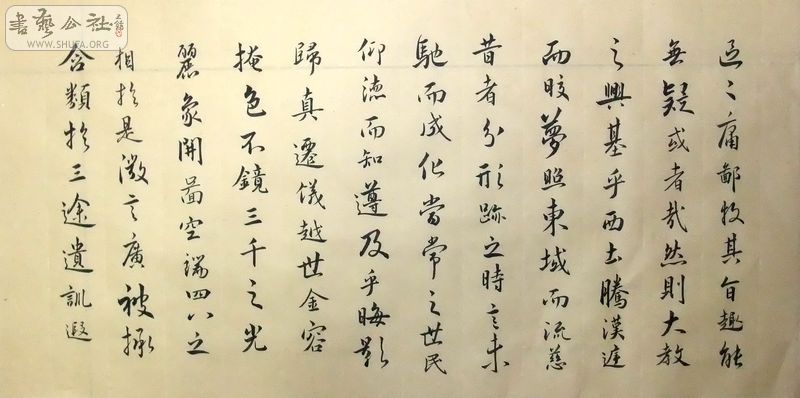 书艺公社
WWW.SHUFA.ORG
区々庸鄙投其旨趣能
無疑或者哉然則大教
之興基乎西土騰漢庭
而皎夢照東域而流慈
昔者分形跡之時言未
馳而成化當常之世民
仰德而知遵及乎晦影
歸真遷儀越世金容
掩色不鏡三千之光
麗象開圖空端四八之
相於是微言廣被拯
含類於三途遺訓遐